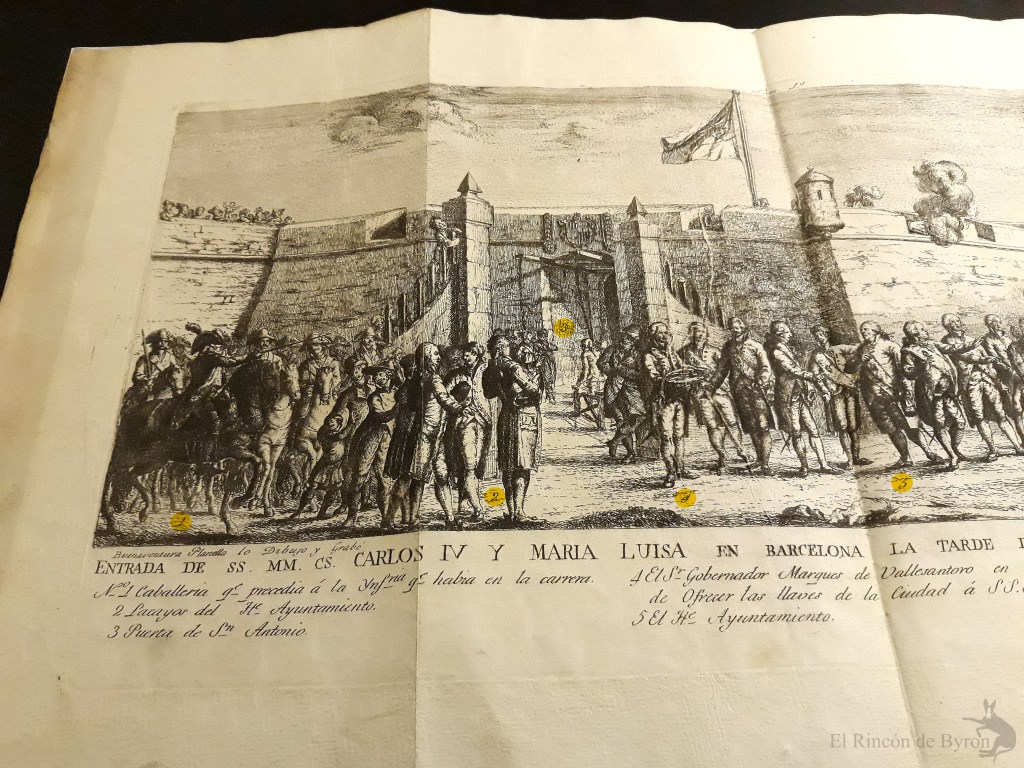 1
2
3
4
5
Buenaventura Planella lo Dibujo y Grabó
ENTRADA DE SS. MM. CS. CARLOS IV Y MARIA LUISA EN BARCELONA LA TARDE D
Nº 1 Caballeria qᵉ precedia á la Ynfʳⁱᵃ qᵉ habia en la carrera.
2 Lacayos del Hᵉ Ayuntamiento.
3 Puerta de Sⁿ Antonio.
4 El Sʳ Gobernador Marques de Vallesantoro en
de Ofrecer las llaves de la Ciudad á S.S.
5 El Hᵉ Ayuntamiento.
El Rincón de Byron